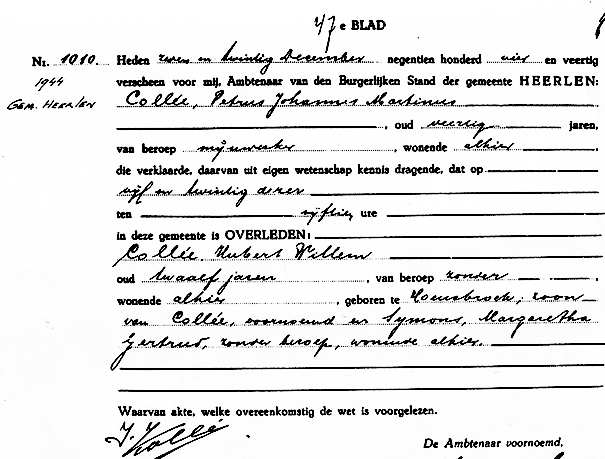 47 e BLAD
Nr. 1010. Heden zeven en twintig December negentien honderd vier en veertig
1944 verscheen voor mij, Ambtenaar van den Burgerlijken Stand der gemeente HEERLEN:
GEM. HEERLEN Collée, Petrus Johannes Martinus
, oud veertig jaren,
van beroep mijnwerker, wonende alhier,
die verklaarde, daarvan uit eigen wetenschap kennis dragende, dat op
vijf en twintig dezer
ten vijftien ure
in deze gemeente is OVERLEDEN:
Collée, Hubert Willem
oud twaalf jaren, van beroep zonder,
wonende alhier, geboren te Hoensbroek; zoon
van Collée, voornoemd en Symons, Margaretha
Gertrud, zonder beroep, wonende alhier.
Waarvan akte, welke overeenkomstig de wet is voorgelezen.
Collé
De Ambtenaar voornoemd,